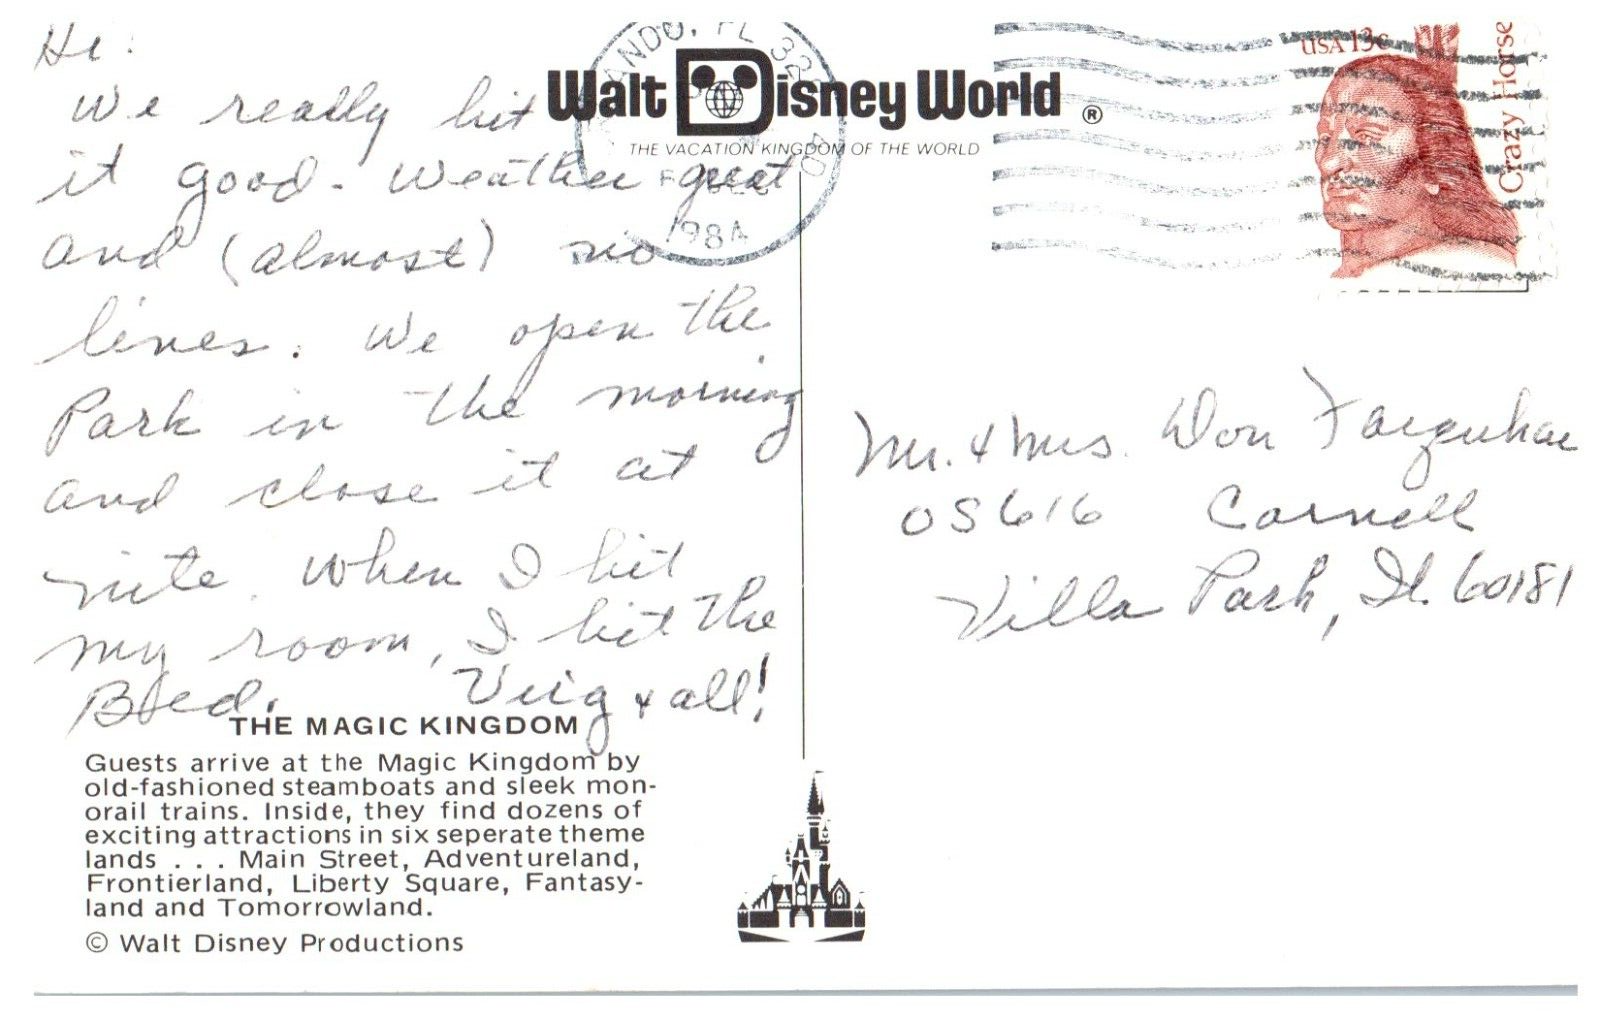 Hi:
We really hit
it good - weather great
and (almost) no
lines. We open the
Park in the morning
and close it at
nite. When I hit
my room, I hit the
Bed. Virg & all!
THE MAGIC KINGDOM
Guests arrive at the Magic Kingdom by
old-fashioned steamboats and sleek mon-
orail trains. Inside, they find dozens of
exciting attractions in six seperate theme
lands . . . Main Street, Adventureland,
Frontierland, Liberty Square, Fantasy-
land and Tomorrowland.
© Walt Disney Productions
Walt Disney World ®
THE VACATION KINGDOM OF THE WORLD
ANDO, FL 32
1984
USA 13c
Crazy Horse
Mr. & Mrs. Don Farquhar
OS616 Cornell
Villa Park, Il. 60181